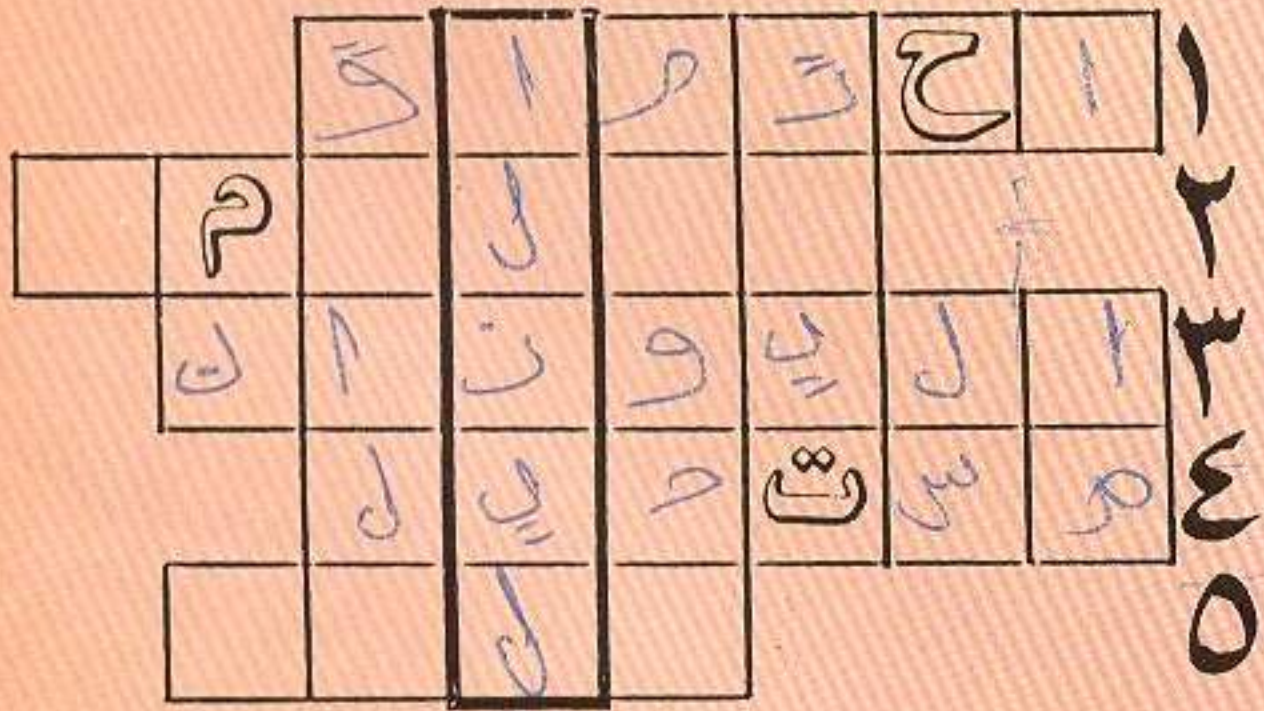 ١ ا ح ت ر ا ق
٢ ل م
٣ ا ل ي و ن ا ن
٤ م س ت ح ي ل
٥ ل